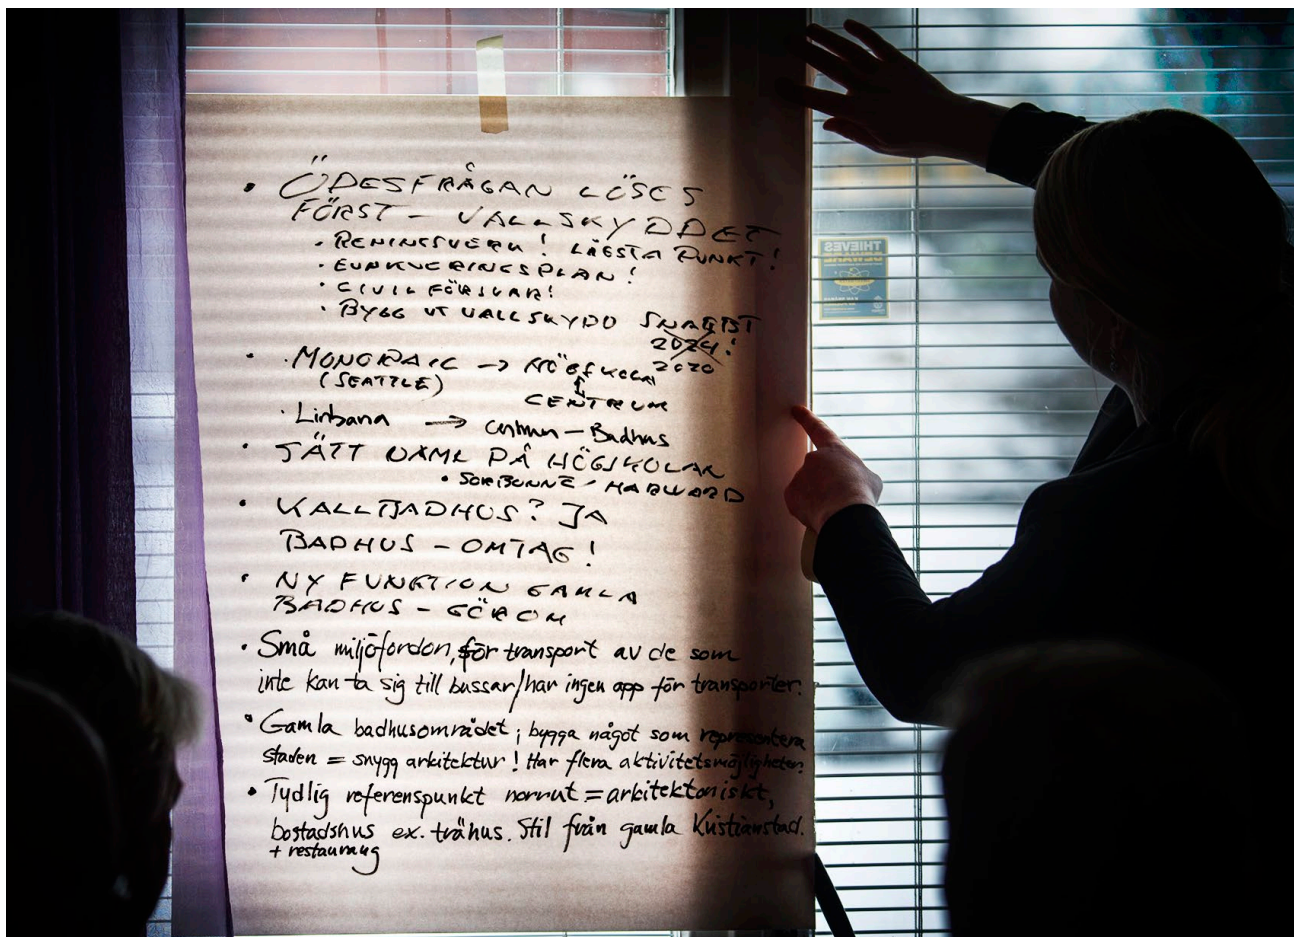 • ÖDESFRÅGAN LÖSES
FÖRST – VALLSKYDDET
· RENINGSVERK! LÄGSTA PUNKT!
· EVAKUERINGSPLAN!
· CIVILFÖRSVAR!
· BYGG UT VALLSKYDD SNABBT
2024!
2020
• · MONORAIL → HÖGSKOLAN
(SEATTLE)
CENTRUM
· Linbana → Centrum – Badhus
• SÄTT NAMN PÅ HÖGSKOLAN
• SORBONNE / HARWARD
• KALLBADHUS? JA
BADHUS – OMTAG!
• NY FUNKTION GAMLA
BADHUS – GÖR OM
• Små miljöfordon, för transport av de som
inte kan ta sig till bussar/har ingen app för transporter.
• Gamla badhusområdet; bygga något som representera
staden = snygg arkitektur! Har flera aktivitetsmöjligheter.
• Tydlig referenspunkt norrut = arkitektoniskt,
bostadshus ex. trähus. Stil från gamla Kristianstad.
+ restaurang
THIEVES
BEWARE